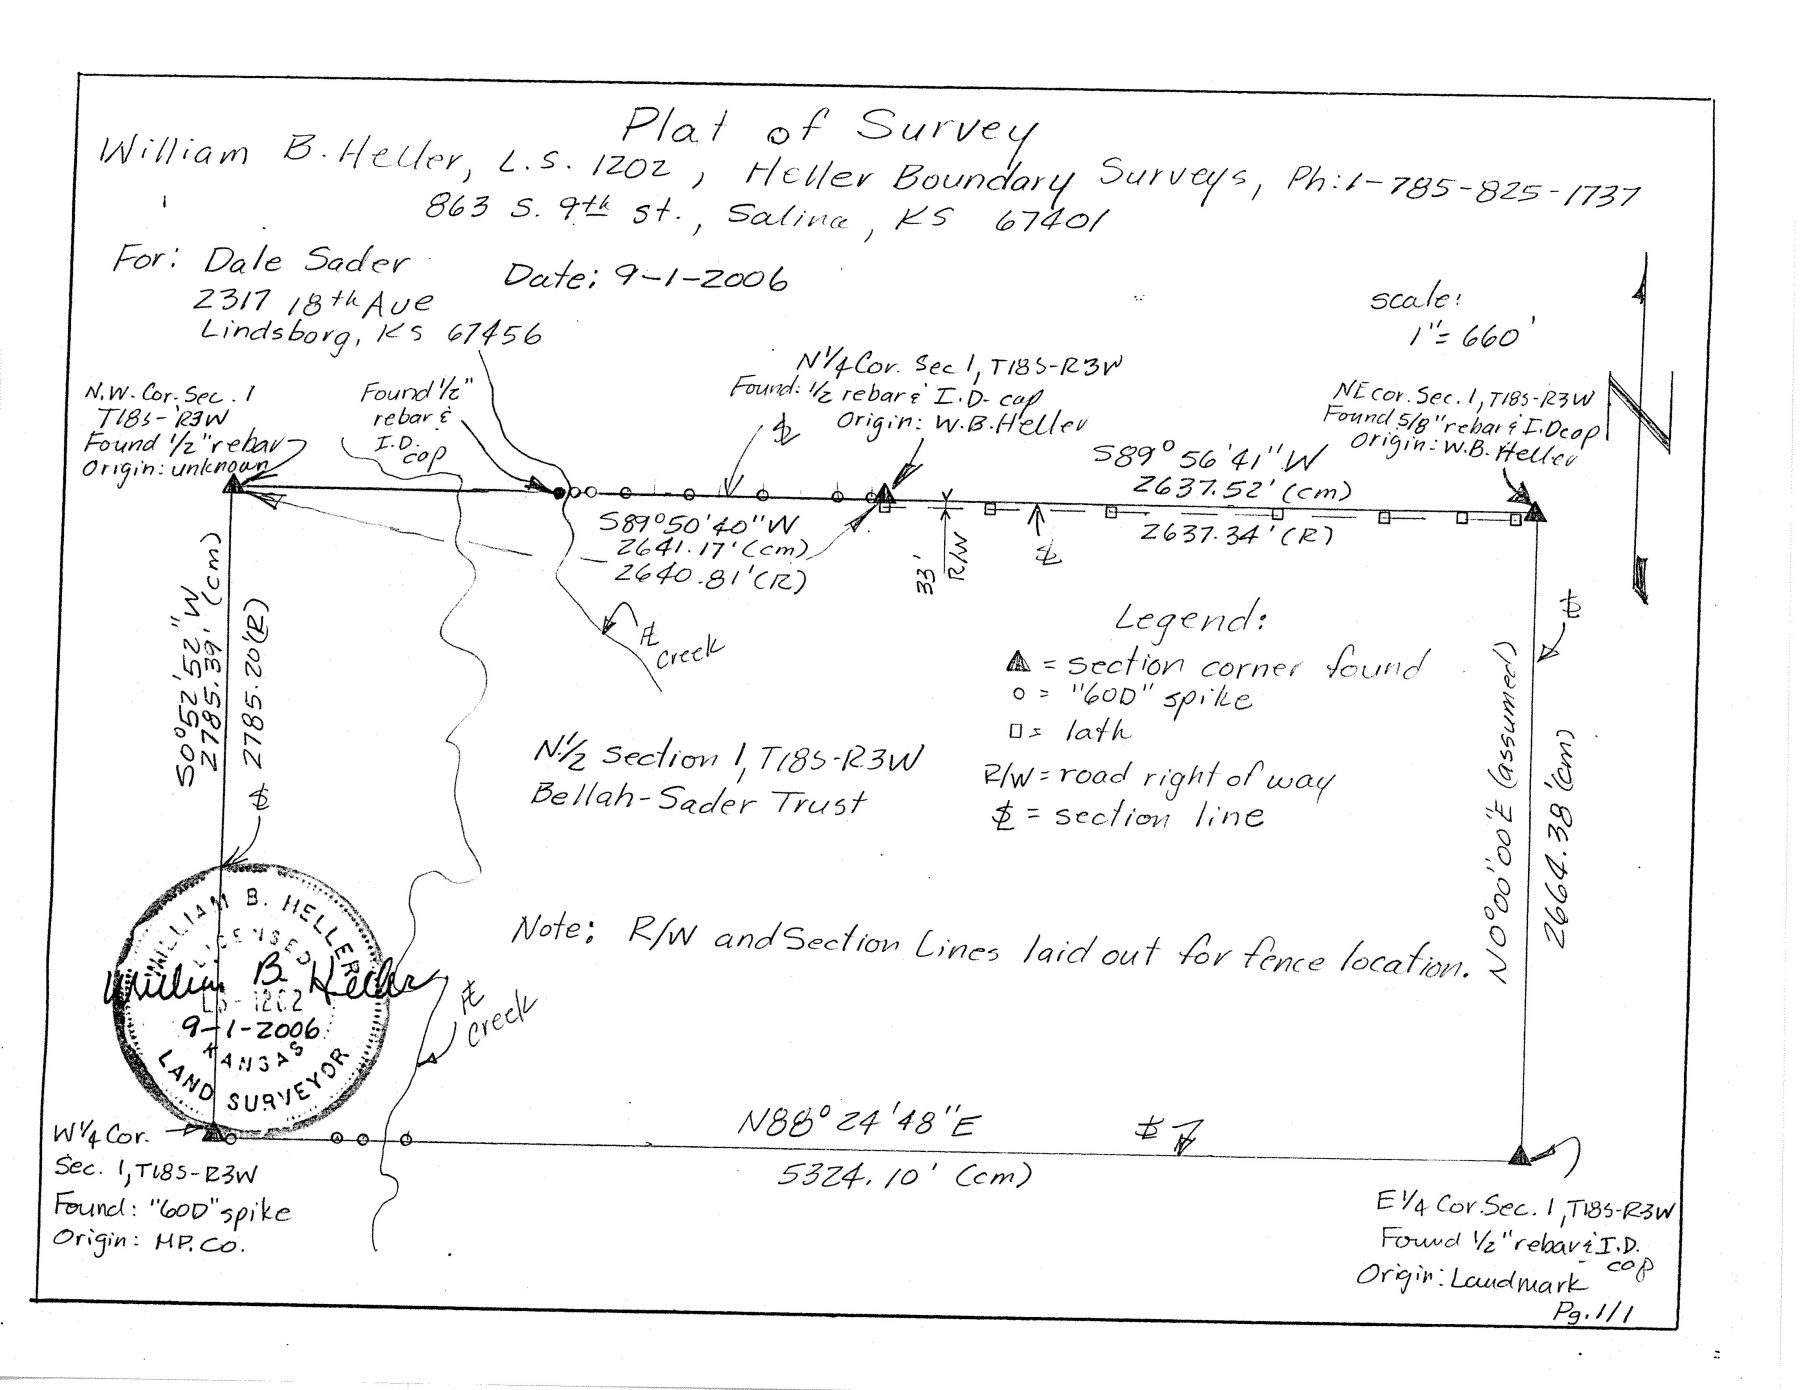 Plat of Survey
William B. Heller, L.S. 1202, Heller Boundary Surveys, Ph:1-785-825-1737
863 S. 9th St., Salina, KS 67401
For: Dale Sader
2317 18th Ave
Lindsborg, KS 67456
Date: 9-1-2006
scale:
1"= 660'
N
N.W. Cor. Sec. 1
T18S-R3W
Found 1/2" rebar
Origin: unknown
Found 1/2"
rebar &
I.D.
cap
N1/4 Cor. Sec 1, T18S-R3W
Found: 1/2 rebar & I.D. cap
Origin: W.B. Heller
NE cor. Sec. 1, T18S-R3W
Found 5/8" rebar & I.D cap
Origin: W.B. Heller
S89° 56' 41" W
2637.52' (cm)
2637.34' (R)
S89° 50' 40" W
2641.17' (cm)
2640.81' (R)
33'
R/W
S0° 52' 52" W
2785.39' (cm)
2785.20' (R)
℄ creek
Legend:
▲ = section corner found
○ = "60D" spike
□ = lath
R/W = road right of way
SL = section line
N1/2 Section 1, T18S-R3W
Bellah-Sader Trust
N0° 00' 00" E (assumed)
2664.38' (cm)
Note: R/W and Section Lines laid out for fence location.
WILLIAM B. HELLER
LICENSED
William B. Heller
LS-1202
9-1-2006
KANSAS
LAND SURVEYOR
℄ creek
N88° 24' 48" E
5324.10' (cm)
W1/4 Cor.
Sec. 1, T18S-R3W
Found: "60D" spike
Origin: MP. Co.
E1/4 Cor. Sec. 1, T18S-R3W
Found 1/2" rebar & I.D.
cap
Origin: Landmark
Pg. 1/1